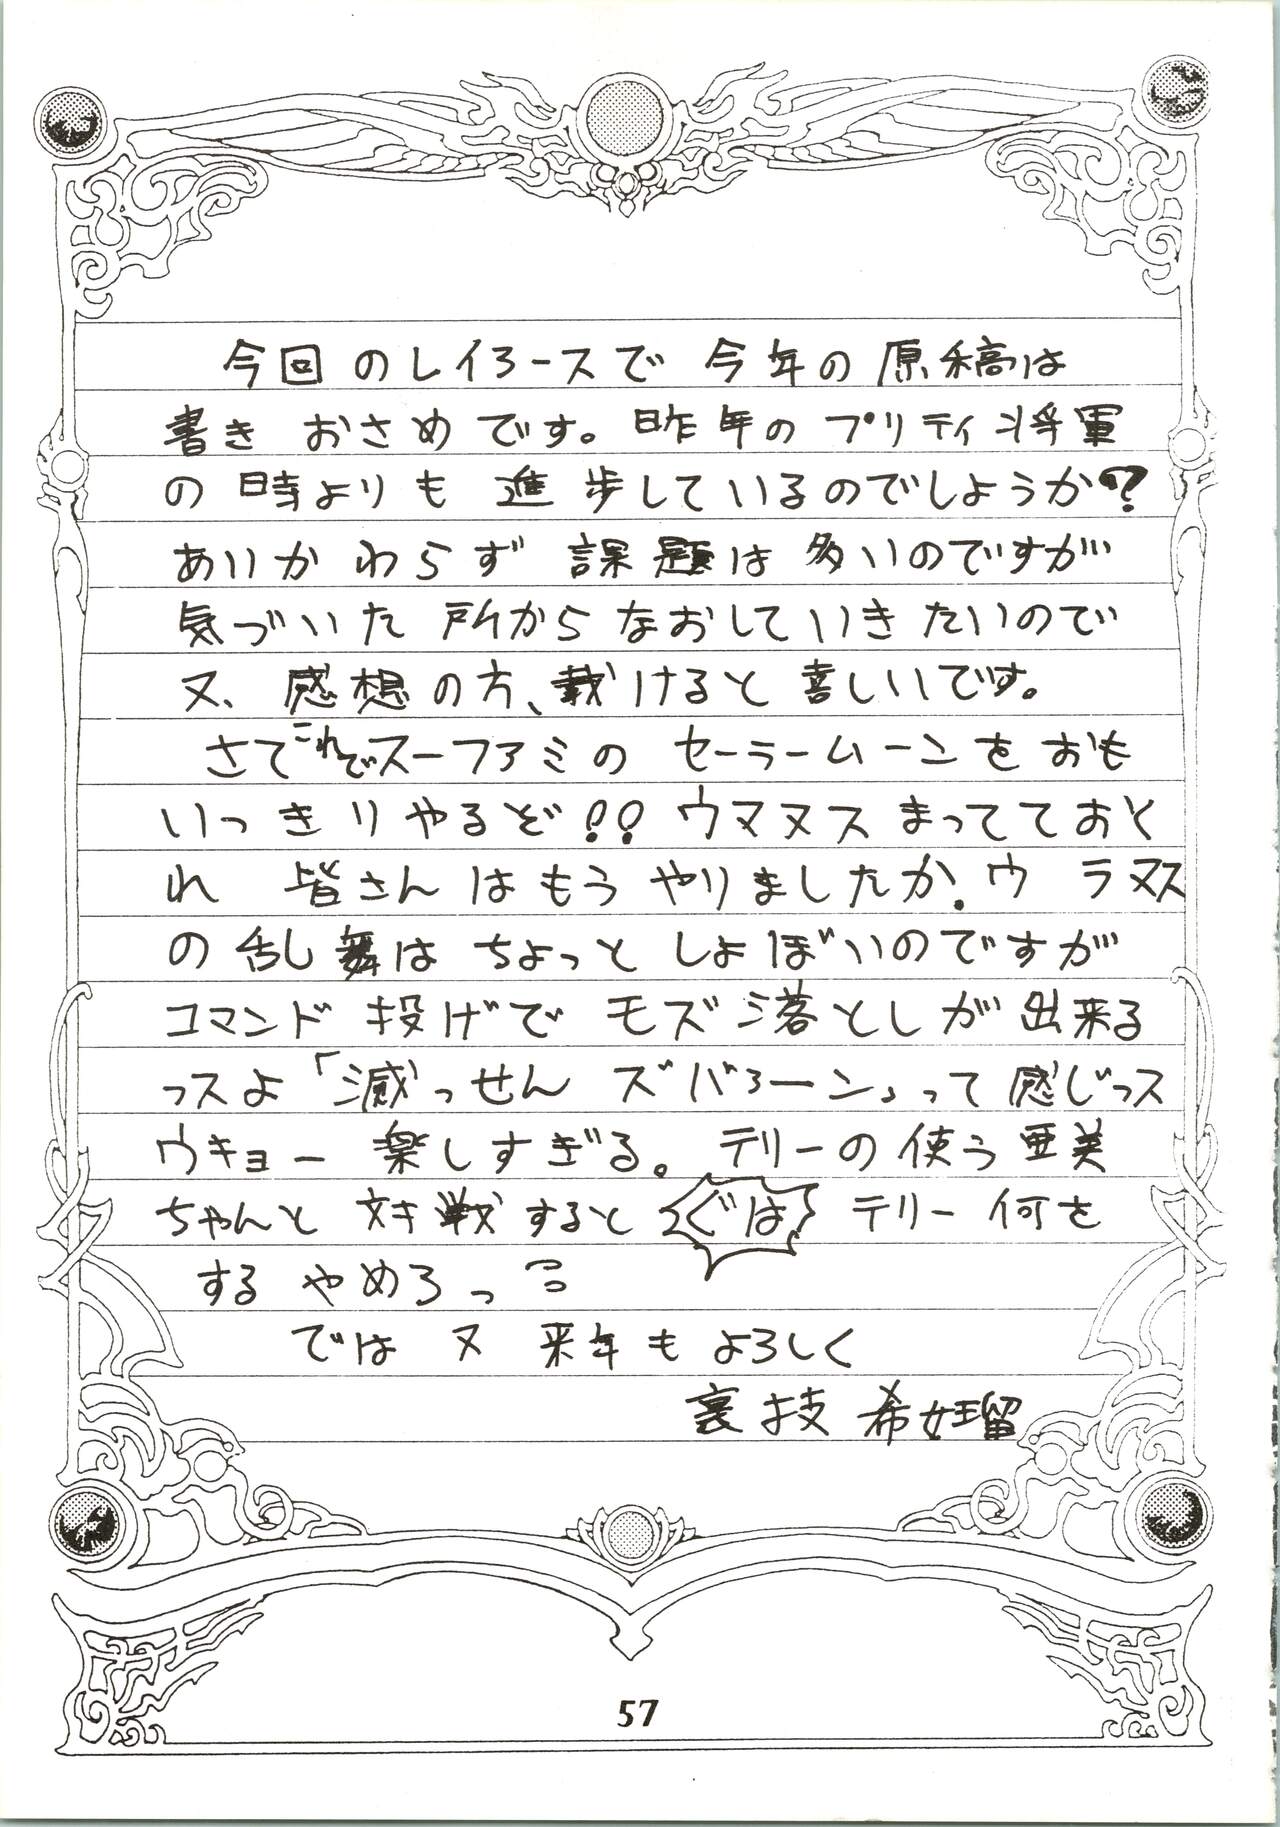 今回のレイろースで 今年の原稿は
書き おさめです。昨年のプリティ将軍
の時よりも 進歩しているのでしょうか?
あいかわらず 課題は多いのですが
気づいた所からなおしていきたいので
又、感想の方、裁けると喜しいです。
さてこれでスーファミのセーラームーンをおも
いっきりやるぞ!!ウマヌスまってておく
れ 皆さんはもうやりましたか.ウラヌス
の乱舞はちょっとしょぼいのですが
コマンド投げでモズ落としが出来る
っスよ「滅っせん ズバろーン」って感じっス
ウキョー楽しすぎる。テリーの使う亜美
ちゃんと対戦すると ぐは テリー何を
するやめろっ
では又来年もよろしく
裏技希妊瑠
57